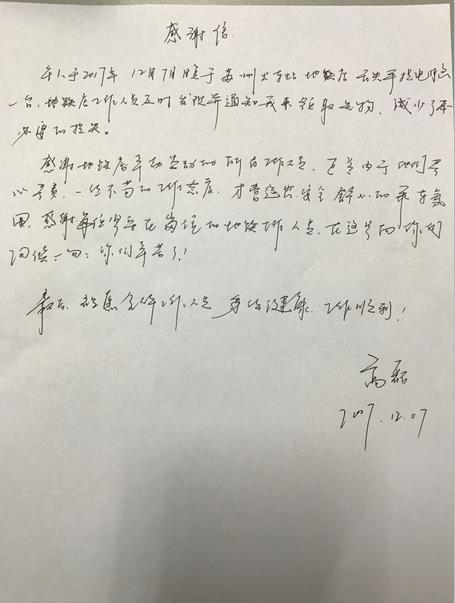 感谢信
本人于2017年12月7日晚于苏州火车站地铁店丢失平板电脑
一台,地铁店工作人员及时发现并通知我来领取失物,减少了不
必要的损失。
感谢地铁店辛勤劳动的所有工作人员,正是由于他们尽
心尽责,一丝不苟的工作态度,才营造出安全舒心的乘车氛
围,感谢每位坚守在岗位的地铁工作人员,在这里向你们
问候一句:你们辛苦了!
最后,祝愿全体工作人员身体健康,工作顺利!
高磊
2017.12.07